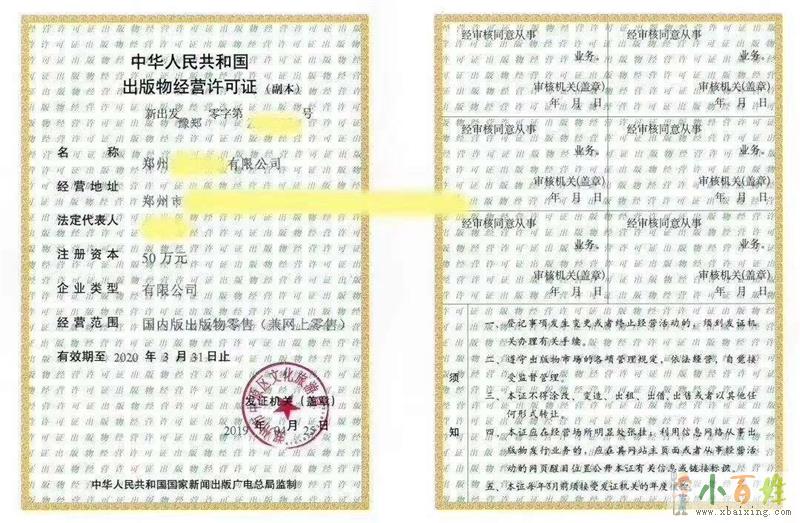 中华人民共和国
出版物经营许可证（副本）
新出发 零字第 号
豫郑
名 称
郑州 有限公司
经营地址
郑州市
法定代表人
注册资本
50万元
企业类型
有限公司
经营范围
国内版出版物零售（兼网上零售）
有效期至 2020 年 3 月 31 日止
发证机关（盖章）
2019 年 月 25 日
中华人民共和国国家新闻出版广电总局监制
经审核同意从事 经审核同意从事
业务。 业务。
审核机关(盖章) 审核机关(盖章)
年 月 日 年 月 日
经审核同意从事 经审核同意从事
业务。 业务。
审核机关(盖章) 审核机关(盖章)
年 月 日 年 月 日
经审核同意从事 经审核同意从事
业务。 业务。
审核机关(盖章) 审核机关(盖章)
年 月 日 年 月 日
须
知
一、登记事项发生变更或者终止经营活动的，须到发证机
关办理有关手续。
二、遵守出版物市场的各项管理规定，依法经营，自觉接
受监督管理。
三、本证不得涂改、变造、出租、出借、出售或者以其他任
何形式转让。
四、本证应在经营场所明显处张挂；利用信息网络从事出
版物发行业务的，应在其网站主页面或者从事经营活
动的网页醒目位置公开本证有关信息或链接标识。
五、本证每年3月前须接受发证机关的年度
小百姓
www.xbaixing.com